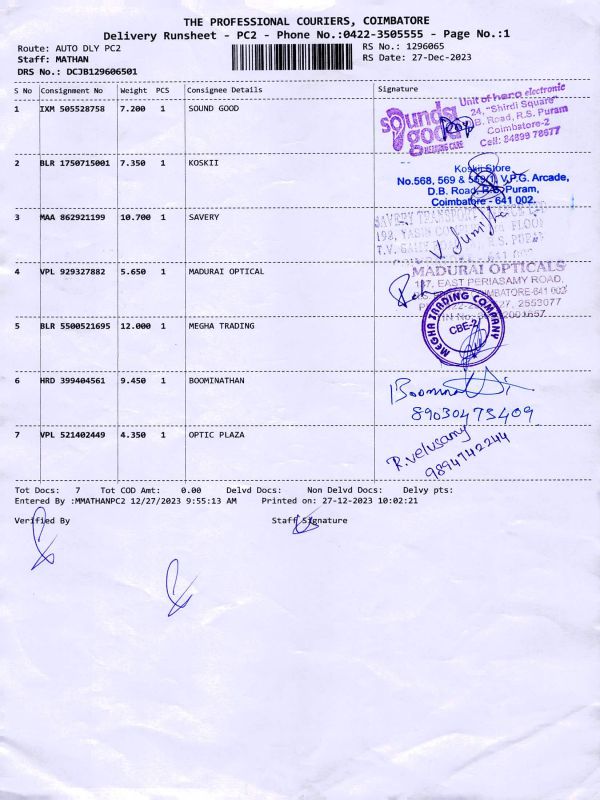 THE PROFESSIONAL COURIERS, COIMBATORE
Delivery Runsheet - PC2 - Phone No.:0422-3505555 - Page No.:1
Route: AUTO DLY PC2
RS No.: 1296065
Staff: MATHAN
RS Date: 27-Dec-2023
DRS No.: DCJB129606501
S No Consignment No Weight PCS Consignee Details Signature
1 IXM 505528758 7.200 1 SOUND GOOD
sounds good
HEARING CARE
Unit of hara electronic
24, "Shirdi Square"
B. Road, R.S. Puram
Coimbatore-2
Cell: 84899 78677
2 BLR 1750715001 7.350 1 KOSKII
Koskii Store
No.568, 569 & 569/1, V.P.G. Arcade,
D.B. Road, R.S. Puram,
Coimbatore - 641 002.
3 MAA 862921199 10.700 1 SAVERY
SAVERY TRANSPORT
FLOOR
4 VPL 929327882 5.650 1 MADURAI OPTICAL
MADURAI OPTICALS
137, EAST PERIASAMY ROAD,
COIMBATORE-641 002
2553077
5 BLR 5500521695 12.000 1 MEGHA TRADING
MEGHA TRADING COMPANY
CBE-2
6 HRD 399404561 9.450 1 BOOMINATHAN
89030475409
7 VPL 521402449 4.350 1 OPTIC PLAZA
R. Velusamy
9894742244
Tot Docs: 7 Tot COD Amt: 0.00 Delvd Docs: Non Delvd Docs: Delvy pts:
Entered By :MMATHANPC2 12/27/2023 9:55:13 AM Printed on: 27-12-2023 10:02:21
Verified By Staff Signature